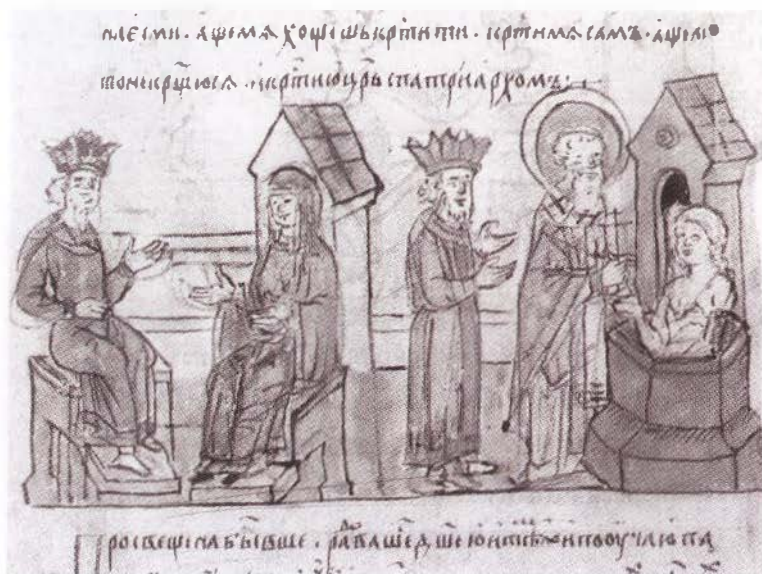 аще мѧ хощешь крт҃ити . крт҃имѧ самъ . аще ли
то некрщ҃юсѧ . и крт҃и ю цр҃ь спатриархомъ:
росвещена бывше . рад҃ваше д҃шею и поучи ю па